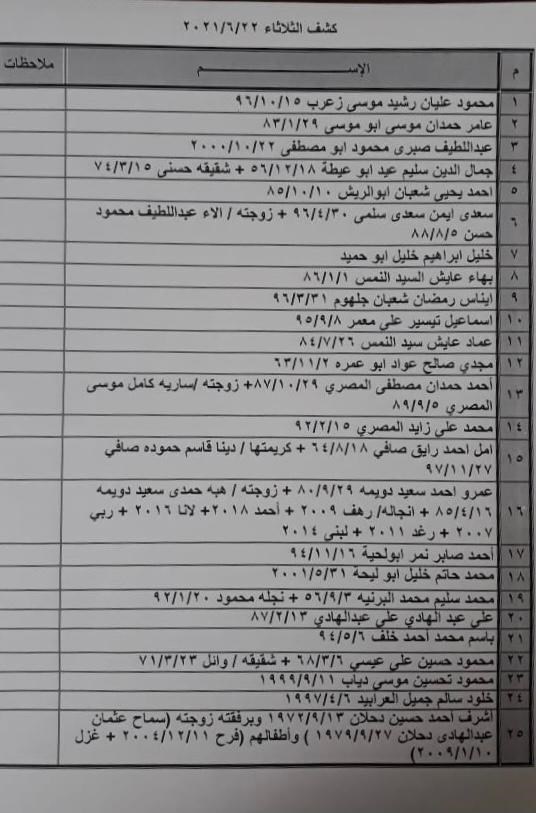 كشف الثلاثاء ٢٠٢١/٦/٢٢
م الإســـــــم ملاحظات
١ محمود عليان رشيد موسى زعرب ٩٦/١٠/١٥
٢ عامر حمدان موسى ابو موسى ٨٣/١/٢٩
٣ عبداللطيف صبرى محمود ابو مصطفى ٢٠٠٠/١٠/٢٢
٤ جمال الدين سليم عيد ابو عيطة ٥٦/١٢/١٨ + شقيقه حسنى ٧٤/٣/١٥
٥ احمد يحيى شعبان ابوالريش ٨٥/١٠/١٠
٦ سعدى ايمن سعدى سلمى ٩٦/٤/٣٠ + زوجته / الاء عبداللطيف محمود
حسن ٨٨/٨/٥
٧ خليل ابراهيم خليل ابو حميد
٨ بهاء عايش السيد النمس ٨٦/١/١
٩ ايناس رمضان شعبان جلهوم ٩٦/٣/٣١
١٠ اسماعيل تيسير على معمر ٩٥/٩/٨
١١ عماد عايش سيد النمس ٨٤/٧/٢٦
١٢ مجدي صالح عواد ابو عمره ٦٣/١١/٢
١٣ أحمد حمدان مصطفى المصري ٨٧/١٠/٢٩+ زوجته /ساريه كامل موسى
المصري ٨٩/٩/٥
١٤ محمد على زايد المصري ٩٢/٢/١٥
١٥ امل احمد رايق صافي ٦٤/٨/١٨ + كريمتها / دينا قاسم حموده صافي
٩٧/١١/٢٧
١٦ عمرو احمد سعيد دويمه ٨٠/٩/٢٩ + زوجته / هبه حمدى سعيد دويمه
٨٥/٤/١٦ + انجاله/ رهف ٢٠٠٩ + أحمد ٢٠١٨+ لانا ٢٠١٦ + ربي
٢٠٠٧ + رغد ٢٠١١ + لبنى ٢٠١٤
١٧ أحمد صابر نمر ابولحية ٩٤/١١/١٦
١٨ محمد حاتم خليل ابو ليحة ٢٠٠١/٥/٣١
١٩ محمد سليم محمد البرنيه ٥٦/٩/٣ + نجله محمود ٩٢/١/٢٠
٢٠ على عبد الهادي على عبدالهادي ٨٧/٢/١٣
٢١ باسم محمد أحمد خلف ٩٤/٥/٦
٢٢ محمود حسين على عيسي ٦٨/٣/٦ + شقيقه / وائل ٧١/٣/٢٣
٢٣ محمود تحسين موسى دياب ١٩٩٩/٩/١١
٢٤ خلود سالم جميل العرابيد ١٩٩٧/٤/٦
٢٥ اشرف أحمد حسين دحلان ١٩٧٢/٩/١٣ وبرفقته زوجته (سماح عثمان
عبدالهادى دحلان ١٩٧٩/٩/٢٧ ) وأطفالهم (فرح ٢٠٠٤/١٢/١١ + غزل
٢٠٠٩/١/١٠)